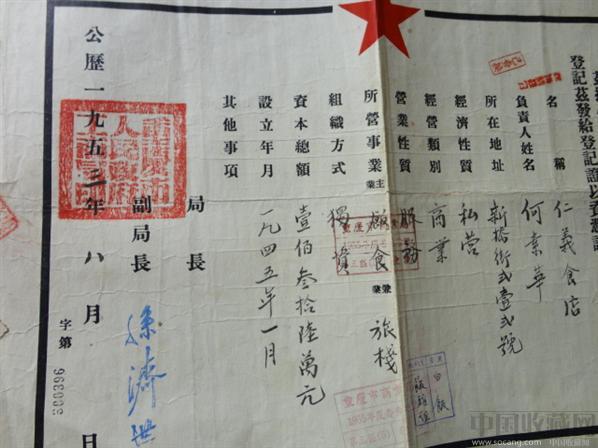 登記茲發給登記證以資憑證
名稱 仁義食店
負責人姓名 何素華
所在地址 新橋街弍壹弍號
經濟性質 私营
經營類別 商業
營業性質 服務
所營事業 主業 飲食 兼業 旅棧
組織方式 獨資
資本總額 壹佰叁拾陸萬元
設立年月 一九四五年一月
其他事項
局長
副局長 孫濟世
公歷一九五三年八月 日
字第 300396
重慶市
白飯
中国收藏网
www.socang.com